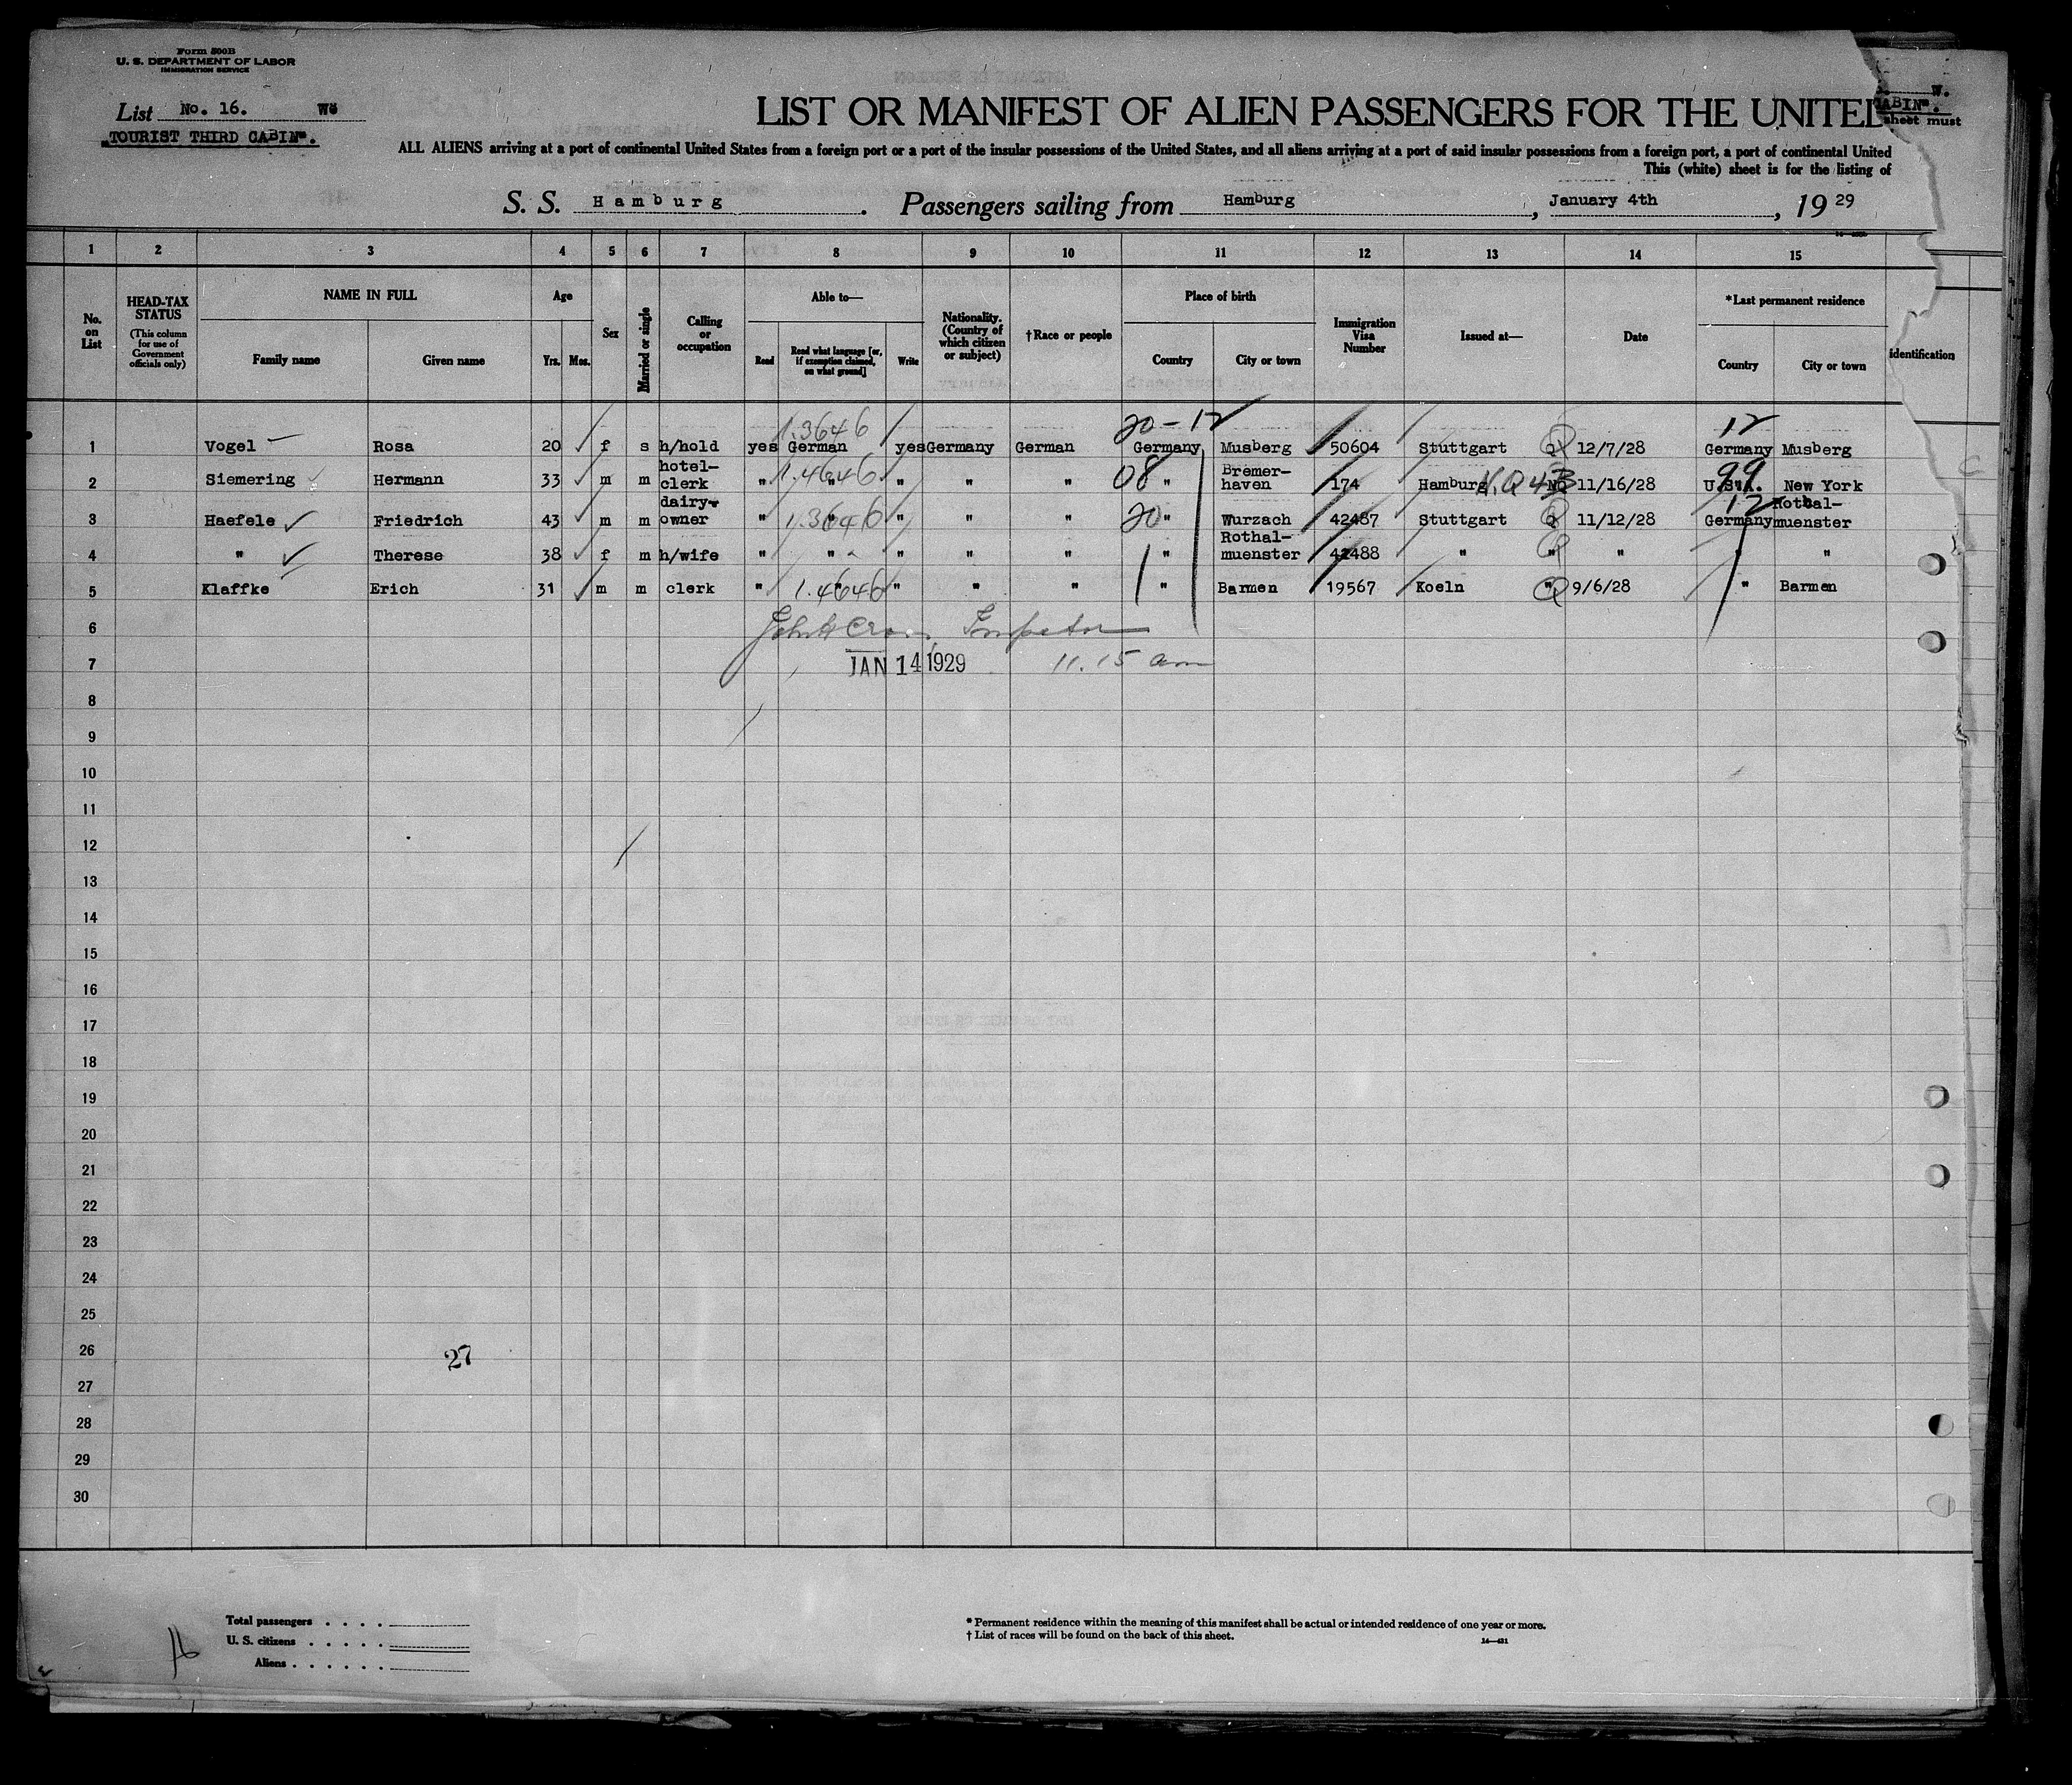 Form 500B
U. S. DEPARTMENT OF LABOR
IMMIGRATION SERVICE
List No. 16.
"TOURIST THIRD CABIN".
LIST OR MANIFEST OF ALIEN PASSENGERS FOR THE UNITED
W.
CABIN".
sheet must
ALL ALIENS arriving at a port of continental United States from a foreign port or a port of the insular possessions of the United States, and all aliens arriving at a port of said insular possessions from a foreign port, a port of continental United
This (white) sheet is for the listing of
S. S. Hamburg. Passengers sailing from Hamburg, January 4th, 19 29
1 2 3 4 5 6 7 8 9 10 11 12 13 14 15
No. on List
HEAD-TAX STATUS (This column for use of Government officials only)
NAME IN FULL Family name Given name
Age Yrs. Mos.
Sex
Married or single
Calling or occupation
Able to— Read Read what language [or, if exemption claimed, on what ground] Write
Nationality. (Country of which citizen or subject)
†Race or people
Place of birth Country City or town
Immigration Visa Number
Issued at—
Date
*Last permanent residence Country City or town
identification
1.3646 20-12 12
1 Vogel Rosa 20 f s h/hold yes German yes Germany German Germany Musberg 50604 Stuttgart Q 12/7/28 Germany Musberg
1.4646 08 99
2 Siemering Hermann 33 m m hotel-clerk " " " " " " Bremer-haven 174 Hamburg NQ 11/16/28 U.S.A. New York
1.3646 20 12
3 Haefele Friedrich 43 m m dairy-owner " " " " " Wurzach 42487 Stuttgart Q 11/12/28 Germany Rothal-muenster
4 " Therese 38 f m h/wife " " " " " " Rothal-muenster 42488 " " " " "
5 Klaffke Erich 31 m m clerk " " 1.4646 " " " " Barmen 19567 Koeln " Q 9/6/28 " Barmen
6 Inspector
7 JAN 14 1929 11.15 am
8
9
10
11
12
13
14
15
16
17
18
19
20
21
22
23
24
25
26
27
27
28
29
30
Total passengers . . . .
U. S. citizens . . . . .
Aliens . . . . . .
16
* Permanent residence within the meaning of this manifest shall be actual or intended residence of one year or more.
† List of races will be found on the back of this sheet.
14—431